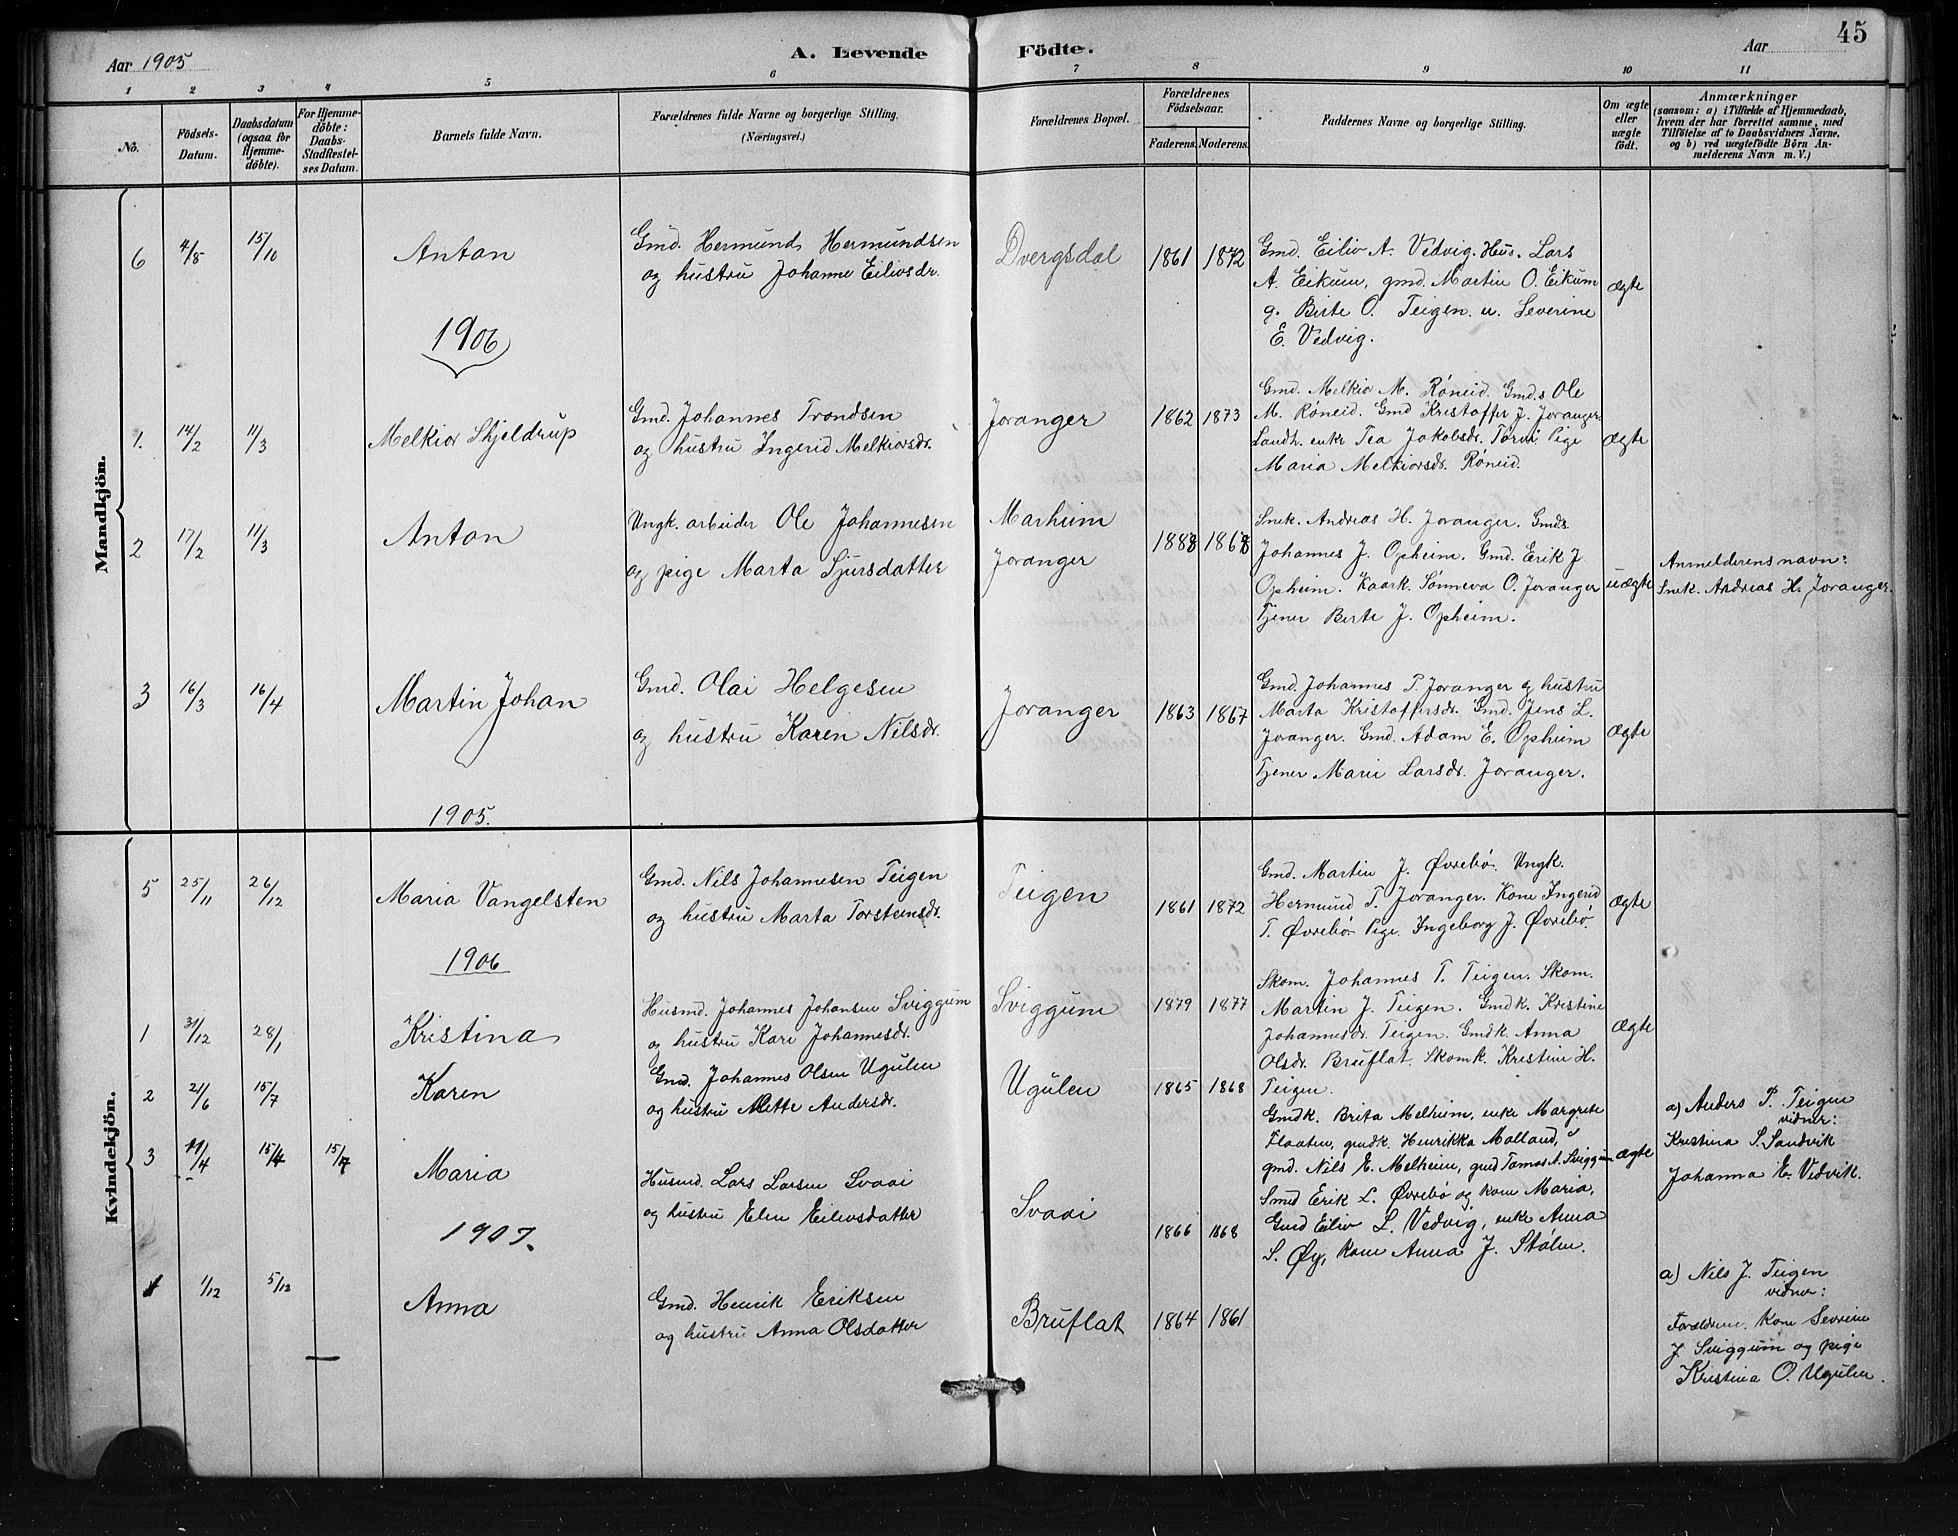 Aar 1905
A. Levende
Födte.
Aar
45
1 2 3 4 5 6 7 8 9 10 11
No.
Födsels-
Datum.
Daabsdatum
(ogsaa for
Hjemme-
döbte).
For Hjemme-
döbte:
Daabs-
Stadfæstel-
ses Datum.
Barnets fulde Navn.
Forældrenes fulde Navne og borgerlige Stilling.
(Næringsvei.)
Forældrenes Bopæl.
Forældrenes
Födselsaar.
Faderens. Moderens.
Faddernes Navne og borgerlige Stilling.
Om ægte
eller
uægte
födt.
Anmærkninger
(saasom: a) i Tilfælde af Hjemmedaab,
hvem der har forrettet samme, med
Tilföielse af to Daabsvidners Navne,
og b) ved uægtefödte Börn An-
melderens Navn m. V.)
Mandkjön.
6 4/8 15/10
Anton
Gmd. Hermund Hermundsen
og hustru Johanne Eilivsdr.
Dvergsdal
1861 1872
Gmd. Eiliv A. Vedvig. Hus. Lars
A. Eikum, gmd. Martin O. Eikum
g. Birte O. Teigen. u. Severine
E. Vedvig.
ægte
1906
1. 14/2 11/3
Melkior Skjeldrup
Gmd. Johannes Trondsen
og hustru Ingerid Melkiorsdr.
Joranger
1862 1873
Gmd. Melkior M. Róneid. Gmd.s Ole
M. Róneid. Gmd Kristoffer J. Joranger
Landh. enke Tea Jakobsdr. Pige
Maria Melkiorsdr. Róneid.
ægte
2 17/2 11/3
Anton
Ungk. arbeider Ole Johannesen
og pige Marta Sjursdatter
Marheim
Joranger
1883 1868
Snek. Andreas H. Joranger. Gmds
Johannes J. Opheim. Gmd. Erik J
Opheim. Kaark. Sónneva O. Joranger
Tjener Berte J. Opheim.
uægte
Anmelderens navn:
Snek. Andreas H. Joranger.
3 16/3 16/4
Martin Johan
Gmd. Olai Helgesen
og hustru Karen Nilsdr.
Joranger
1863 1867
Gmd. Johannes P. Joranger og hustru
Marta Kristoffersdr. Gmd. Jens L.
Joranger. Gmd. Adam E. Opheim
Tjener Marie Larsdr. Joranger.
ægte
Kvindekjön.
1905.
5 25/11 26/12
Maria Vangelsten
Gmd. Nils Johannesen Teigen
og hustru Marta Torsteinsdr.
Teigen
1861 1872
Gmd. Martin J. Øvrebø. Ungk.
Hermund T. Joranger. Kone Ingerid
T. Øvrebø. Pige. Ingeborg J. Øvrebø.
ægte
1906
1 31/12 28/1
Kristina
Husmd. Johannes Johansen Sviggum
og hustru Kari Johannesdr.
Sviggum
1879 1877
Skom. Johannes T. Teigen. Skom.
Martin J. Teigen. Gmdk. Kristine
Johannesdr. Teigen. Gmdk. Anna
Olsdr. Bruflat. Skomk. Kristin H.
Teigen.
ægte
2 21/6 15/7
Karen
Gmd. Johannes Olsen Ugulen
og hustru Mette Andersdr.
Ugulen
1865 1868
Gmdk. Brita Melheim, enke Margrete
Flaaten, gmdk. Henrikka Molland,
gmd. Nils E. Melheim, gmd Tomas A. Sviggum
ægte
a) Anders P. Teigen
vidner:
Kristina S. Sandvik
Johanna E. Vedvik.
3 11/4 15/4 15/7
Maria
Husmd. Lars Larsen Svaai
og hustru Elen Eilevsdatter
Svaai
1866 1868
Smed Erik L. Øvrebø og kone Maria,
Gmd Eiliv L. Vedvig, enke Anna
S. Øy, kone Anna J. Stólen.
1907.
1 1/12 5/12
Anna
Gmd. Henrik Eriksen
og hustru Anna Olsdatter
Bruflat
1864 1861
a) Nils J. Teigen
vidner:
Forældrene. kone Severine
J. Sviggum og pige
Kristina O. Ugulen.